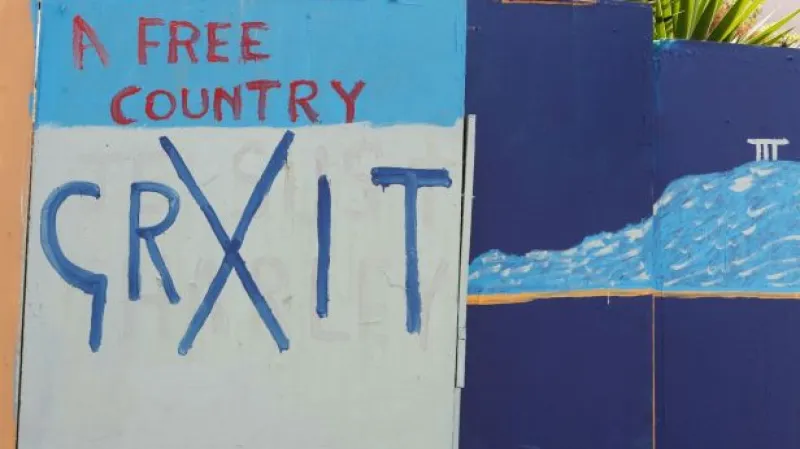 A FREE
COUNTRY
GRXIT